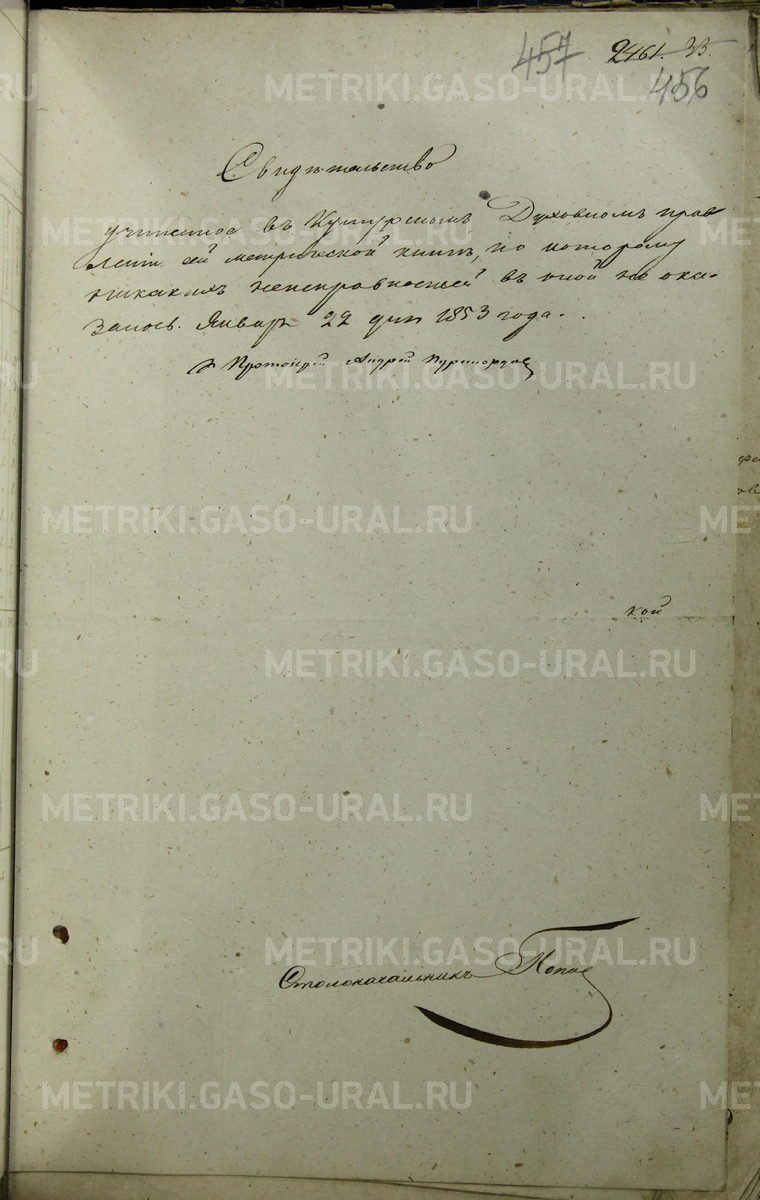 457 2461. 33.
456
Свидѣтельство
учинено въ Духовномъ прав
ленiи сей метрической книгѣ, по которому
никакихъ неисправностей въ оной не ока-
залось. Январ 22 дня 1853 года.
Протоіерей Андрей
кой
Столоначальникъ Попов
METRIKI.GASO-URAL.RU